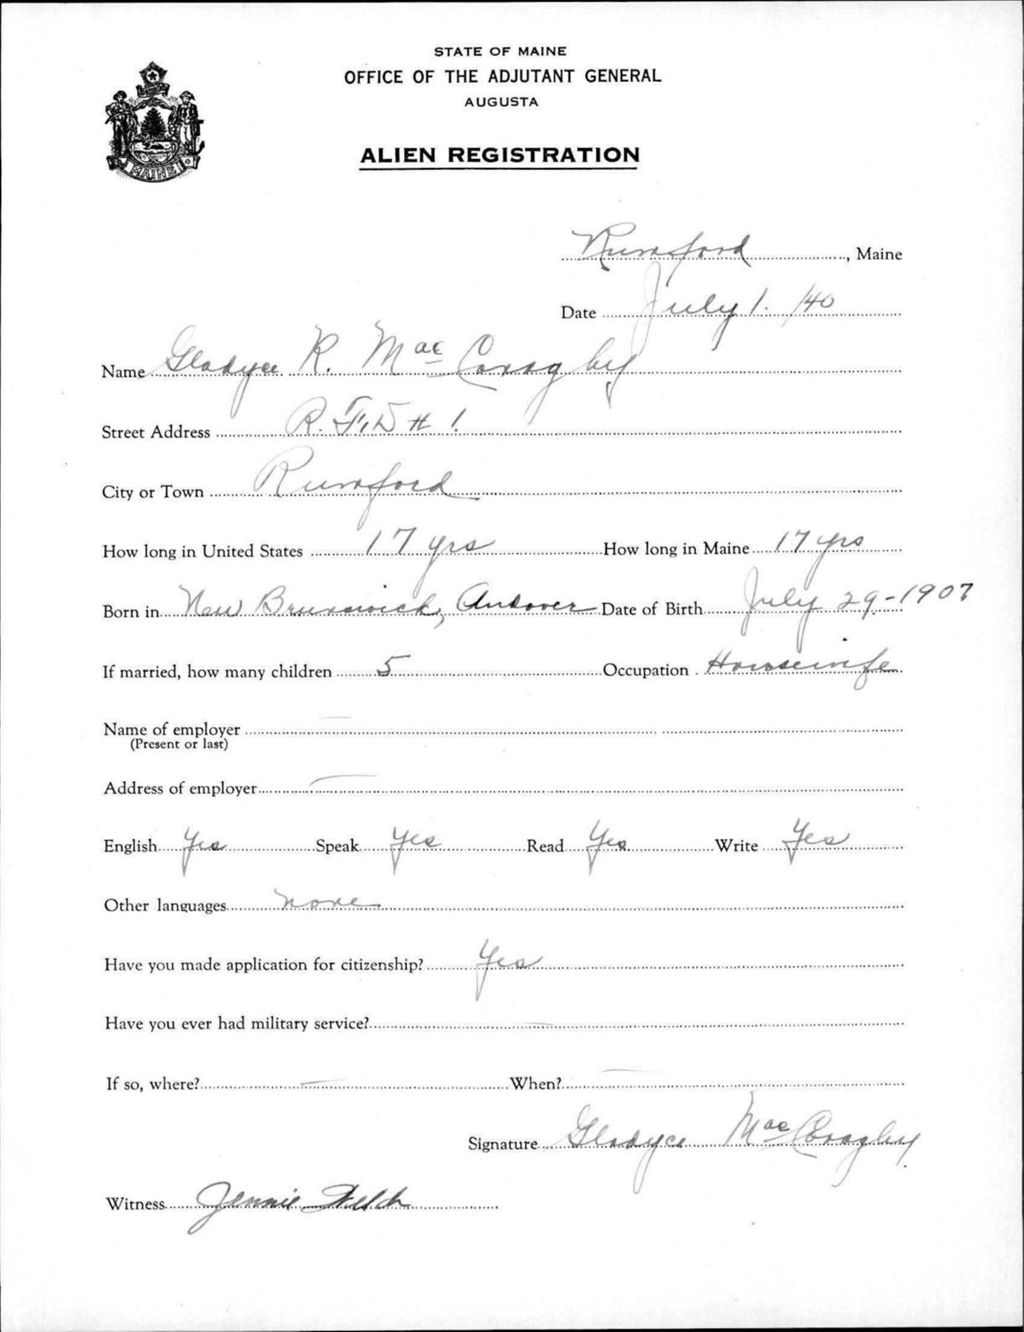 STATE OF MAINE
OFFICE OF THE ADJUTANT GENERAL
AUGUSTA
ALIEN REGISTRATION
MAINE
Rumford, Maine
Date July 1. /40
Name Gladyce R. Mac
Street Address R.F.D # 1.
City or Town Rumford
How long in United States 17 yrs How long in Maine 17 yrs
Born in New Brunswick, Andover Date of Birth July 29-1907
If married, how many children 5 Occupation Housewife
Name of employer —
(Present or last)
Address of employer —
English Yes Speak Yes Read Yes Write Yes
Other languages none
Have you made application for citizenship? Yes
Have you ever had military service? —
If so, where? — When? —
Signature Gladyce Mac
Witness Jennie